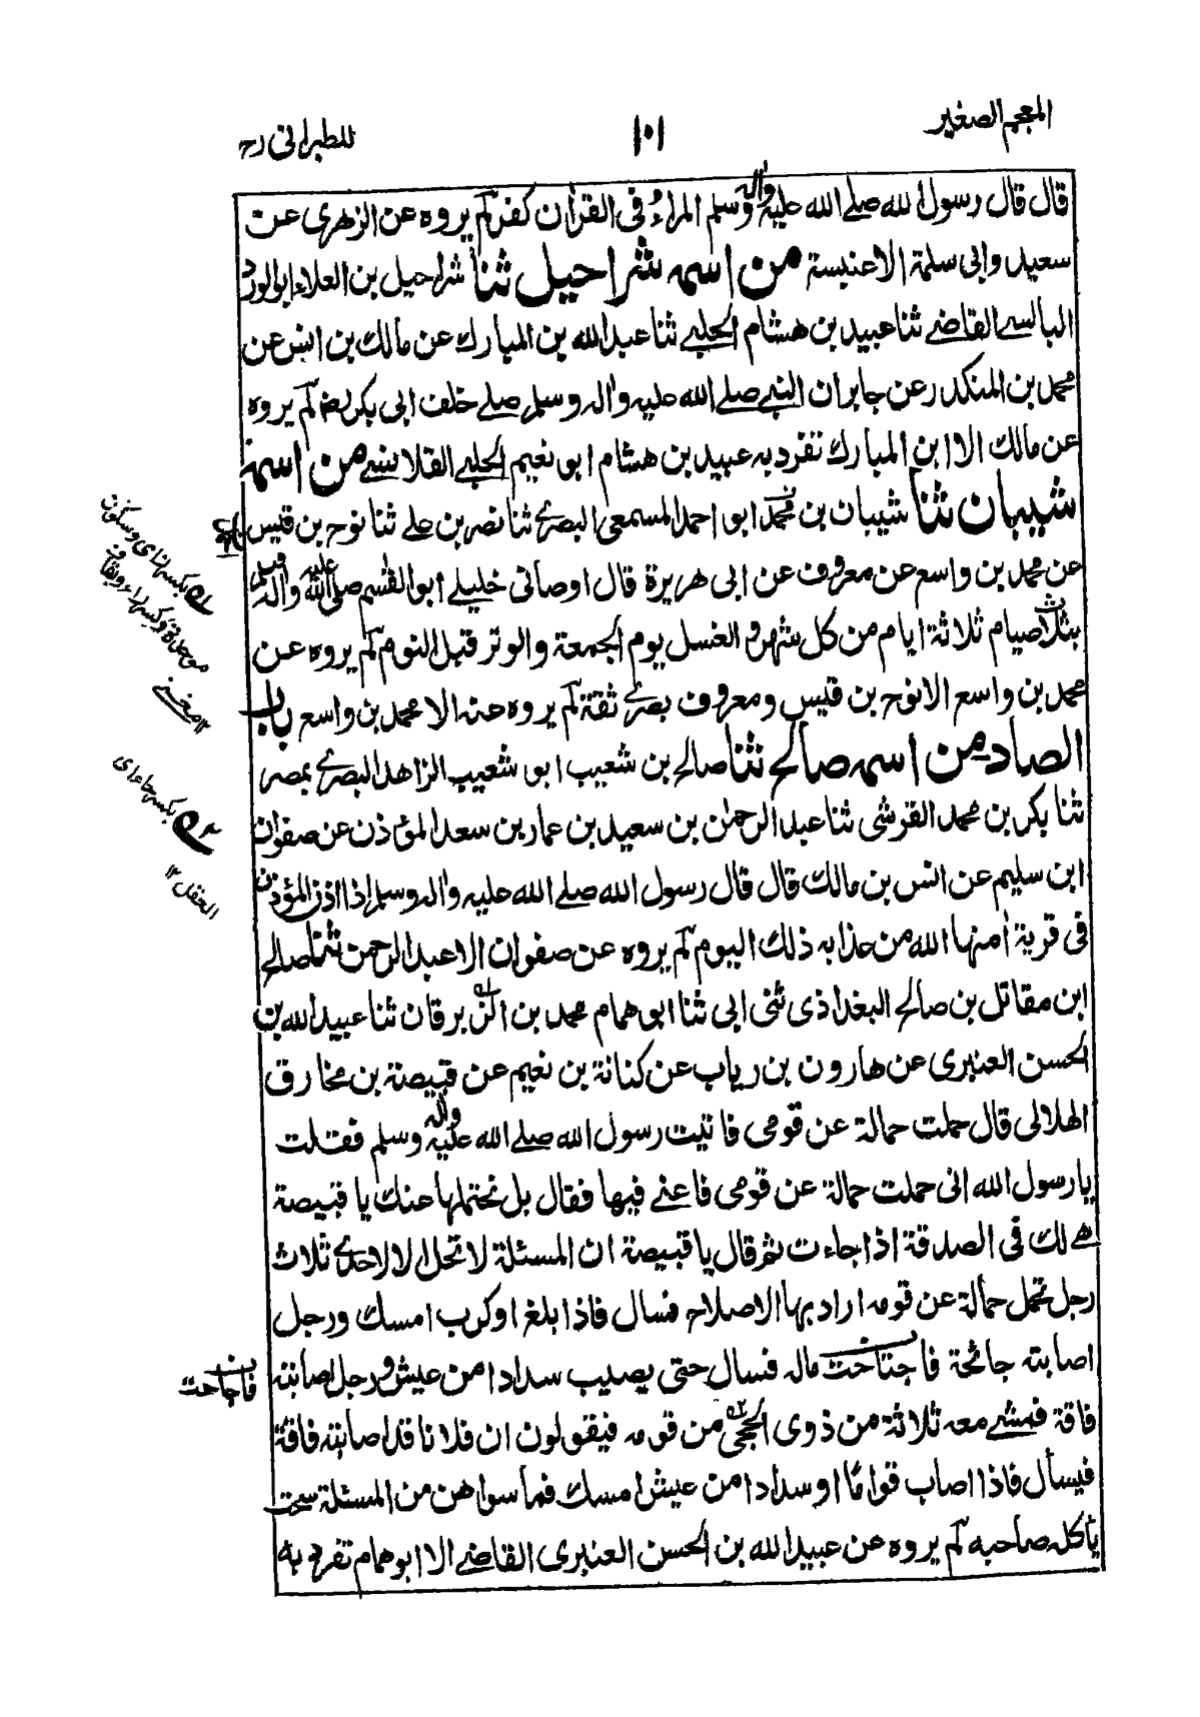 المعجم الصغير
١٠١
للطبرانی رح
قال قال رسول الله صلے الله علیه واٰله وسلم المراءُ فی القراٰن کفر لم یروه عن الزهری عن
سعید وابی سلمة الا عنبسة من اسمه شراحیل ثنا شراحیل بن العلاء ابو الورد
البالسے القاضے ثنا عبید بن هشام الحلبے ثنا عبد الله بن المبارك عن مالك بن انس عن
محمد بن المنکدر عن جابر ان النبے صلے الله علیه واٰله وسلم صلے خلف ابی بکر رضـ لم یروه
عن مالك الا ابن المبارك تفرد به عبید بن هشام ابو نعیم الحلبے القلانسے من اسمه
شیبان ثنا شیبان بن محمد ابو احمد المسمعی البصرے ثنا نصر بن علے ثنا نوح بن قیس
عن محمد بن واسع عن معروف عن ابی هریرة قال اوصانی خلیلے ابو القٰسم صلی الله علیه واٰله وسلم
بثلاث صیام ثلاثة ایام من کل شهر و الغسل یوم الجمعة والوتر قبل النوم لم یروه عن
محمد بن واسع الا نوح بن قیس ومعروف بصرے ثقة لم یروه عنه الا محمد بن واسع باب
الصاد من اسمه صالح ثنا صالح بن شعیب ابو شعیب الزاهد البصرے بمصر
ثنا بکر بن محمد القرشی ثنا عبد الرحمٰن بن سعید بن عمار بن سعد المؤذن عن صفوان
ابن سلیم عن انس بن مالك قال قال رسول الله صلے الله علیه واٰله وسلم اذا اذن المؤذن
فی قریة اٰمنها الله من عذابه ذلك الیوم لم یروه عن صفوان الا عبد الرحمن ثنا صالح
ابن مقاتل بن صالح البغداذی ثنی ابی ثنا ابو همام محمد بن الزبرقان ثنا عبید الله بن
الحسن العنبری عن هارون بن ریاب عن کنانة بن نعیم عن قبیصة بن مخارق
الهلالی قال حملت حمالة عن قومی فاتیت رسول الله صلے الله علیه واٰله وسلم فقلت
یا رسول الله انی حملت حمالة عن قومی فاعنے فیها فقال بل نحتملها عنك یا قبیصة
هے لك فی الصدقة اذا جاءت ثم قال یا قبیصة ان المسئلة لا تحل الا لاحدے ثلاث
رجل تحمل حمالة عن قومه اراد بها الاصلاح فسال فاذا بلغ او کرب امسك ورجل
اصابته جائحة فاجتاحت ماله فسال حتی یصیب سدادا من عیش ورجل اصابته
فاجاحت
فاقة فمشے معه ثلاثة من ذوی الحجی من قومه فیقولون ان فلانا قد اصابته فاقة
فیسأل فاذا اصاب قواما او سدادا من عیش امسك فما سواهن من المسئلة سحت
یأکله صاحبه لم یروه عن عبید الله بن الحسن العنبری القاضے الا ابو همام تفرد به
بکسر الزای وسکون
موحدة وکسر راء وبقاف
مغنے ١٢
بکسر حاء ای
العقل ١٢